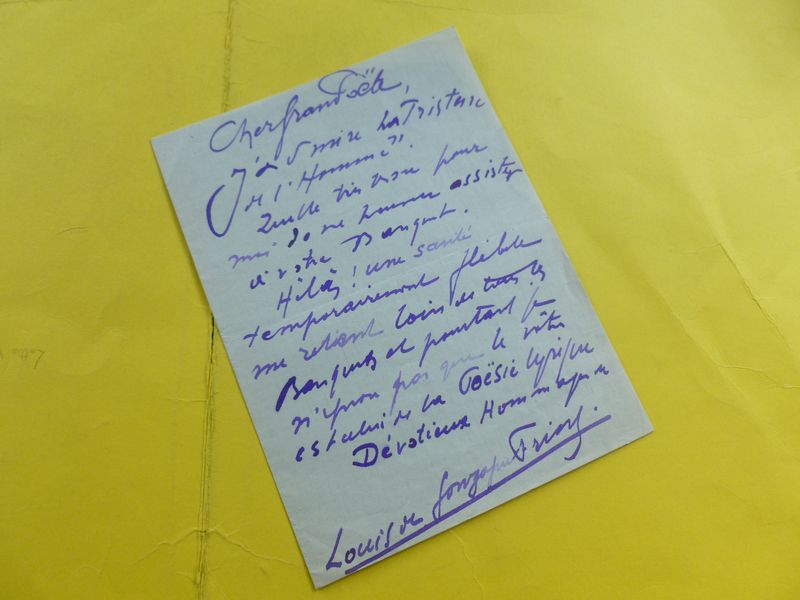 Cher Grand Poëte,
J'admire "La Tristesse
de l'Homme".
Quelle tristesse pour
moi de ne pouvoir assister
à votre Banquet.
Hélas ! une santé
temporairement flébile
me retient loin de tous les
Banquets et pourtant je
n'ignore pas que le vôtre
est celui de la Poësie lyrique
Dévotieux Hommages
Louis de Gonzague Frick.